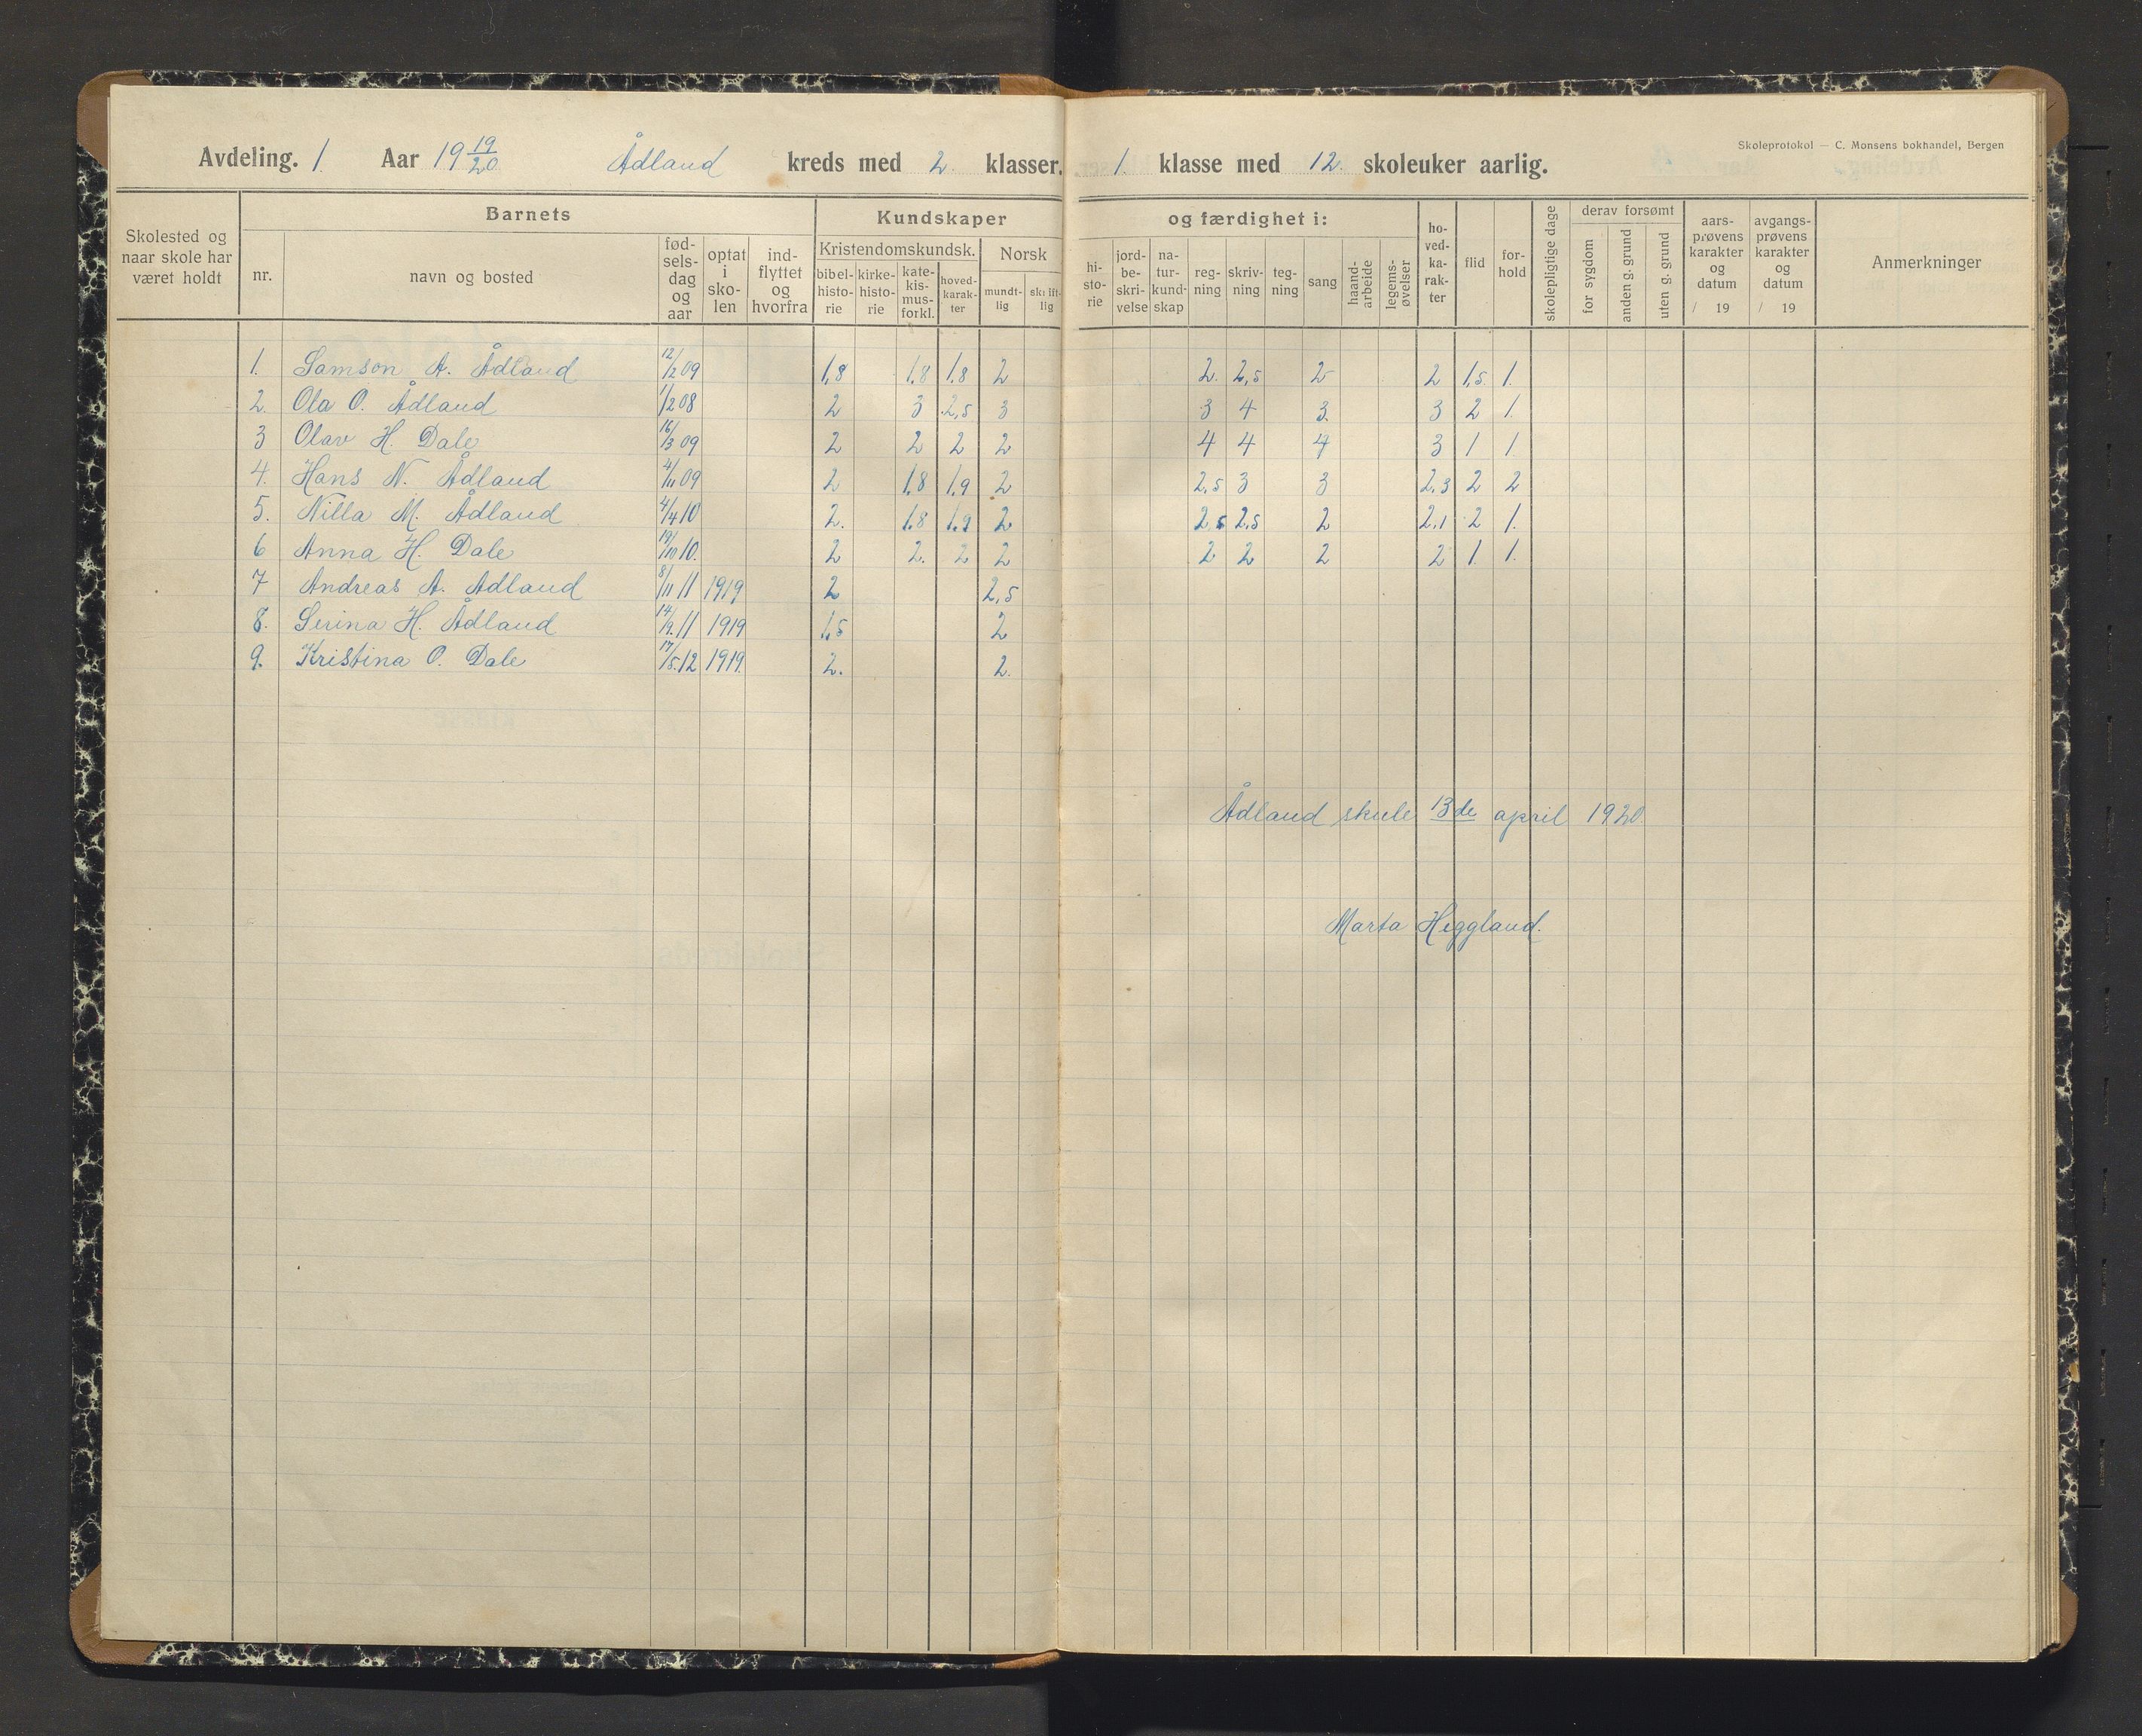 Avdeling. 1. Aar 19 19/20 Ådland kreds med 2. klasser. 1. klasse med 12. skoleuker aarlig.
Skoleprotokol — C. Monsens bokhandel, Bergen
Skolested og naar skole har været holdt
Barnets
nr.
navn og bosted
fød-sels-dag og aar
optat i sko-len
ind-flyttet og hvorfra
Kundskaper og færdighet i:
Kristendomskundsk.
bibel-histo-rie
kirke-histo-rie
kate-kis-mus-forkl.
hoved-karak-ter
Norsk
mundt-lig
skrift-lig
hi-sto-rie
jord-be-skri-velse
na-tur-kund-skap
reg-ning
skriv-ning
teg-ning
sang
haand-arbeide
legems-øvelser
ho-ved-ka-rak-ter
flid
for-hold
skolepligtige dage
derav forsømt
for sygdom
anden g. grund
uten g. grund
aars-prøvens karakter og datum / 19
avgangs-prøvens karakter og datum / 19
Anmerkninger
1. Samson A. Ådland 12/2 09 1,8 1,8 1,8 2 2. 2,5 2 2 1,5 1.
2. Ola O. Ådland 1/2 08 2 3 2,5 3 3 4 3. 3 2 1.
3 Olav H. Dale 16/3 09 2 2 2 2 4 4 4 3 1 1
4. Hans N. Ådland 4/11 09 2 1,8 1,9 2 2,5 3 3 2,3 2 2
5. Nilla M. Ådland 4/4 10 2. 1,8 1,9 2 2,5 2,5 2 2,1 2 1.
6 Anna H. Dale 19/10 10. 2 2. 2 2 2 2 2 2 1. 1.
7 Andreas A. Ådland 8/11 11 1919 2 2,5
8. Serina H. Ådland 14/9. 11 1919 1,5 2
9. Kristina O. Dale 17/5. 12 1919. 2. 2.
Ådland skule 13de april 1920.
Marta Heggland.